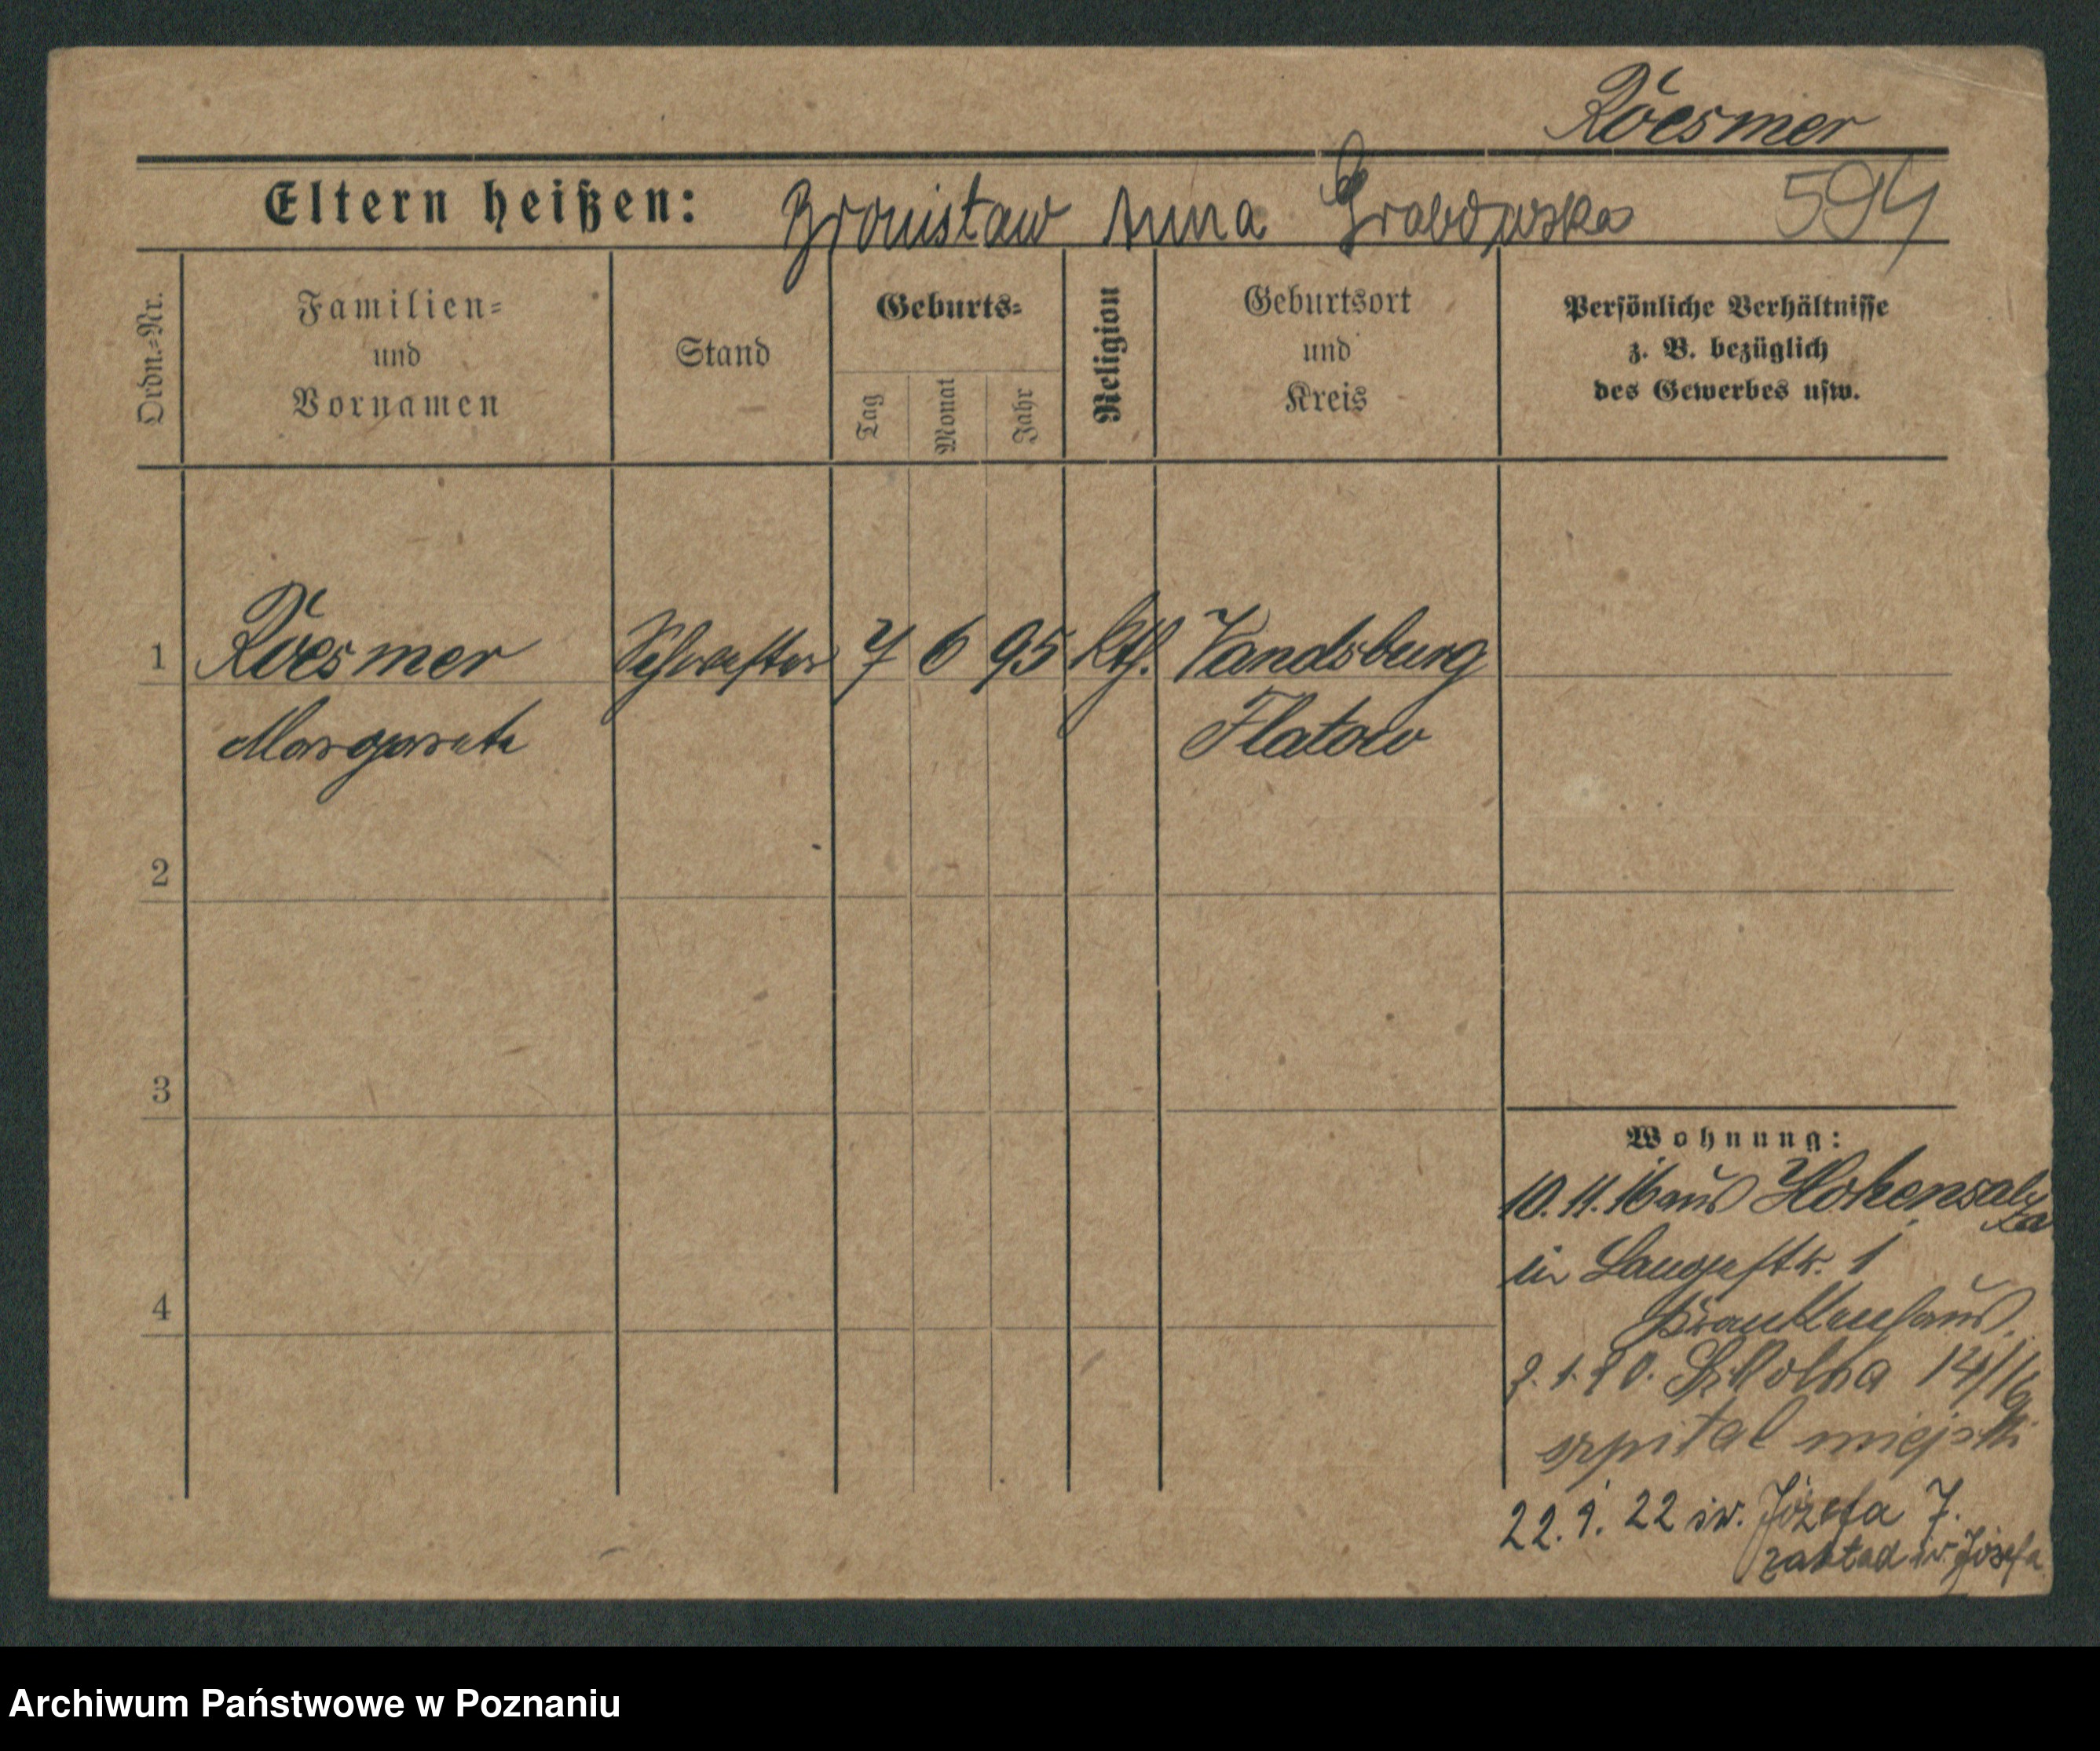 Röesmer
Eltern heißen: Bronisław Anna Grabowska 594
Ordn.-Nr.
Familien-
und
Vornamen
Stand
Geburts-
Tag
Monat
Jahr
Religion
Geburtsort
und
Kreis
Persönliche Verhältnisse
z. B. bezüglich
des Gewerbes usw.
1 Röesmer Schwester 7 6 95 kth. Vandsburg
Margarete Flatow
2
3
4
Wohnung:
10. 11. 16 aus Hohensalza
in Langestr. 1
Krankenhaus
Szkolna 14/16
szpital miejski
22. 9. 22 św. Józefa 7.
zakład św. Józefa
Archiwum Państwowe w Poznaniu